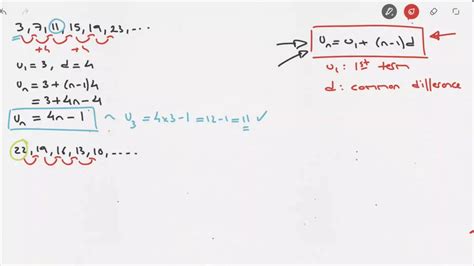 3, 7, 11, 15, 19, 23, ...
+4 +4
U₁ = 3, d = 4
Uₙ = 3 + (n-1)4
= 3 + 4n - 4
Uₙ = 4n - 1
U₃ = 4×3-1 = 12-1 = 11 ✓
22, 19, 16, 13, 10, ....
Uₙ = U₁ + (n-1)d
U₁: 1st term
d: common difference